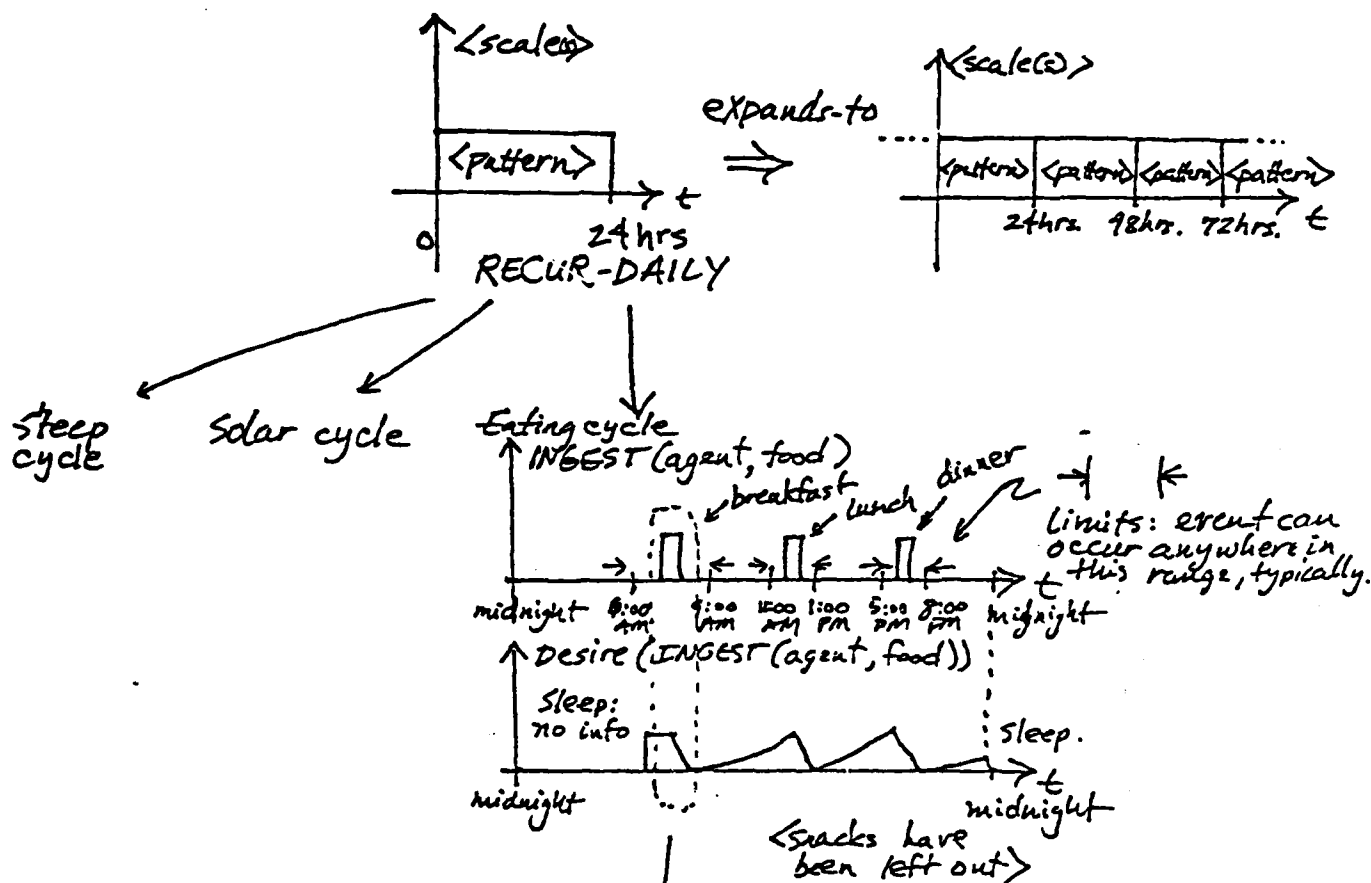 <scale(s)>
<pattern>
t
0
24hrs
RECUR-DAILY
expands-to
<scale(s)>
....
...
<pattern> <pattern> <pattern> <pattern>
24hrs. 48hrs. 72hrs. t
Sleep
cycle
Solar cycle
Eating cycle
INGEST(agent, food)
breakfast
lunch
dinner
limits: event can
occur anywhere in
this range, typically.
t
midnight 6:00 AM 9:00 AM 11:00 AM 1:00 PM 5:00 PM 8:00 PM midnight
Desire(INGEST(agent, food))
Sleep:
no info
Sleep.
t
midnight
midnight
<snacks have
been left out>